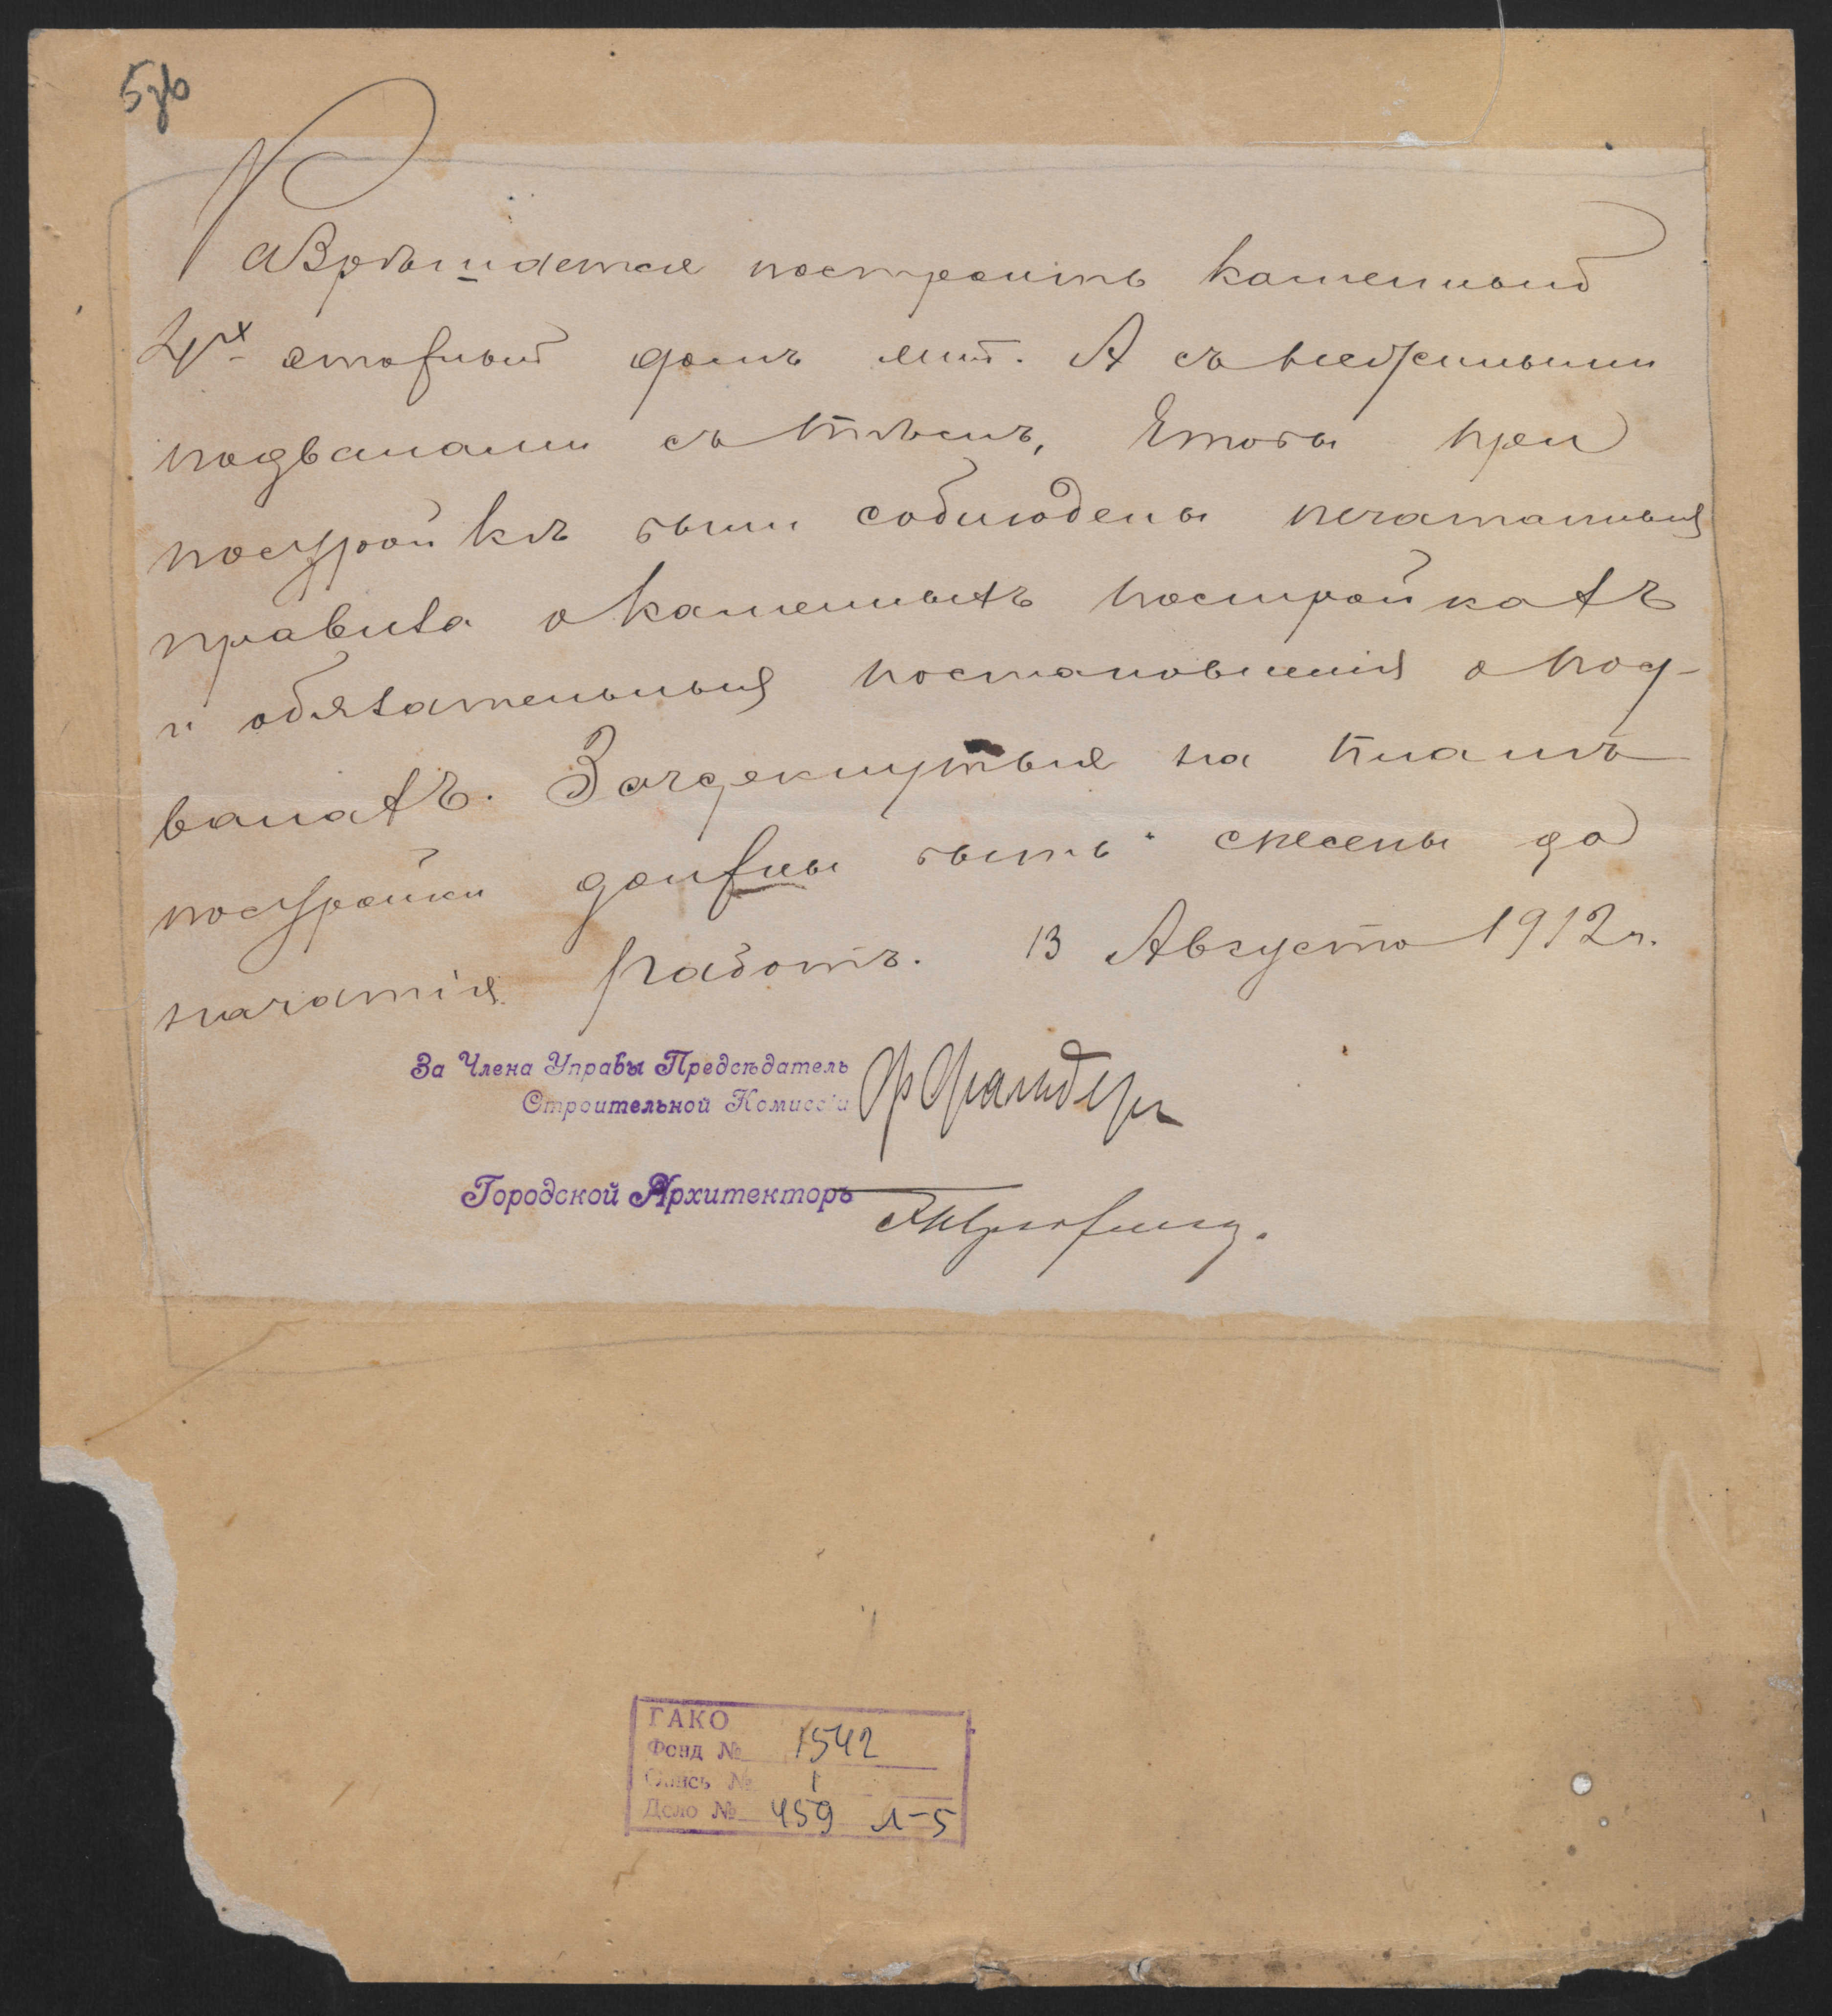 5зв
Разрѣшается построить каменный
4х этажный домъ лит. А съ нежилыми
подвалами съ тѣмъ, чтобы при
постройкѣ были соблюдены печатанныя
правила о каменныхъ постройкахъ
и обязательныя постановленія о под-
валахъ. Зачеркнутыя на планѣ
постройки должны быть снесены до
начатія работъ. 13 Августа 1912 г.
За Члена Управы Предсѣдатель
Строительной Комиссіи
Городской Архитекторъ
ГАКО
Фонд № 1542
Опись № 1
Дело № 459 л-5